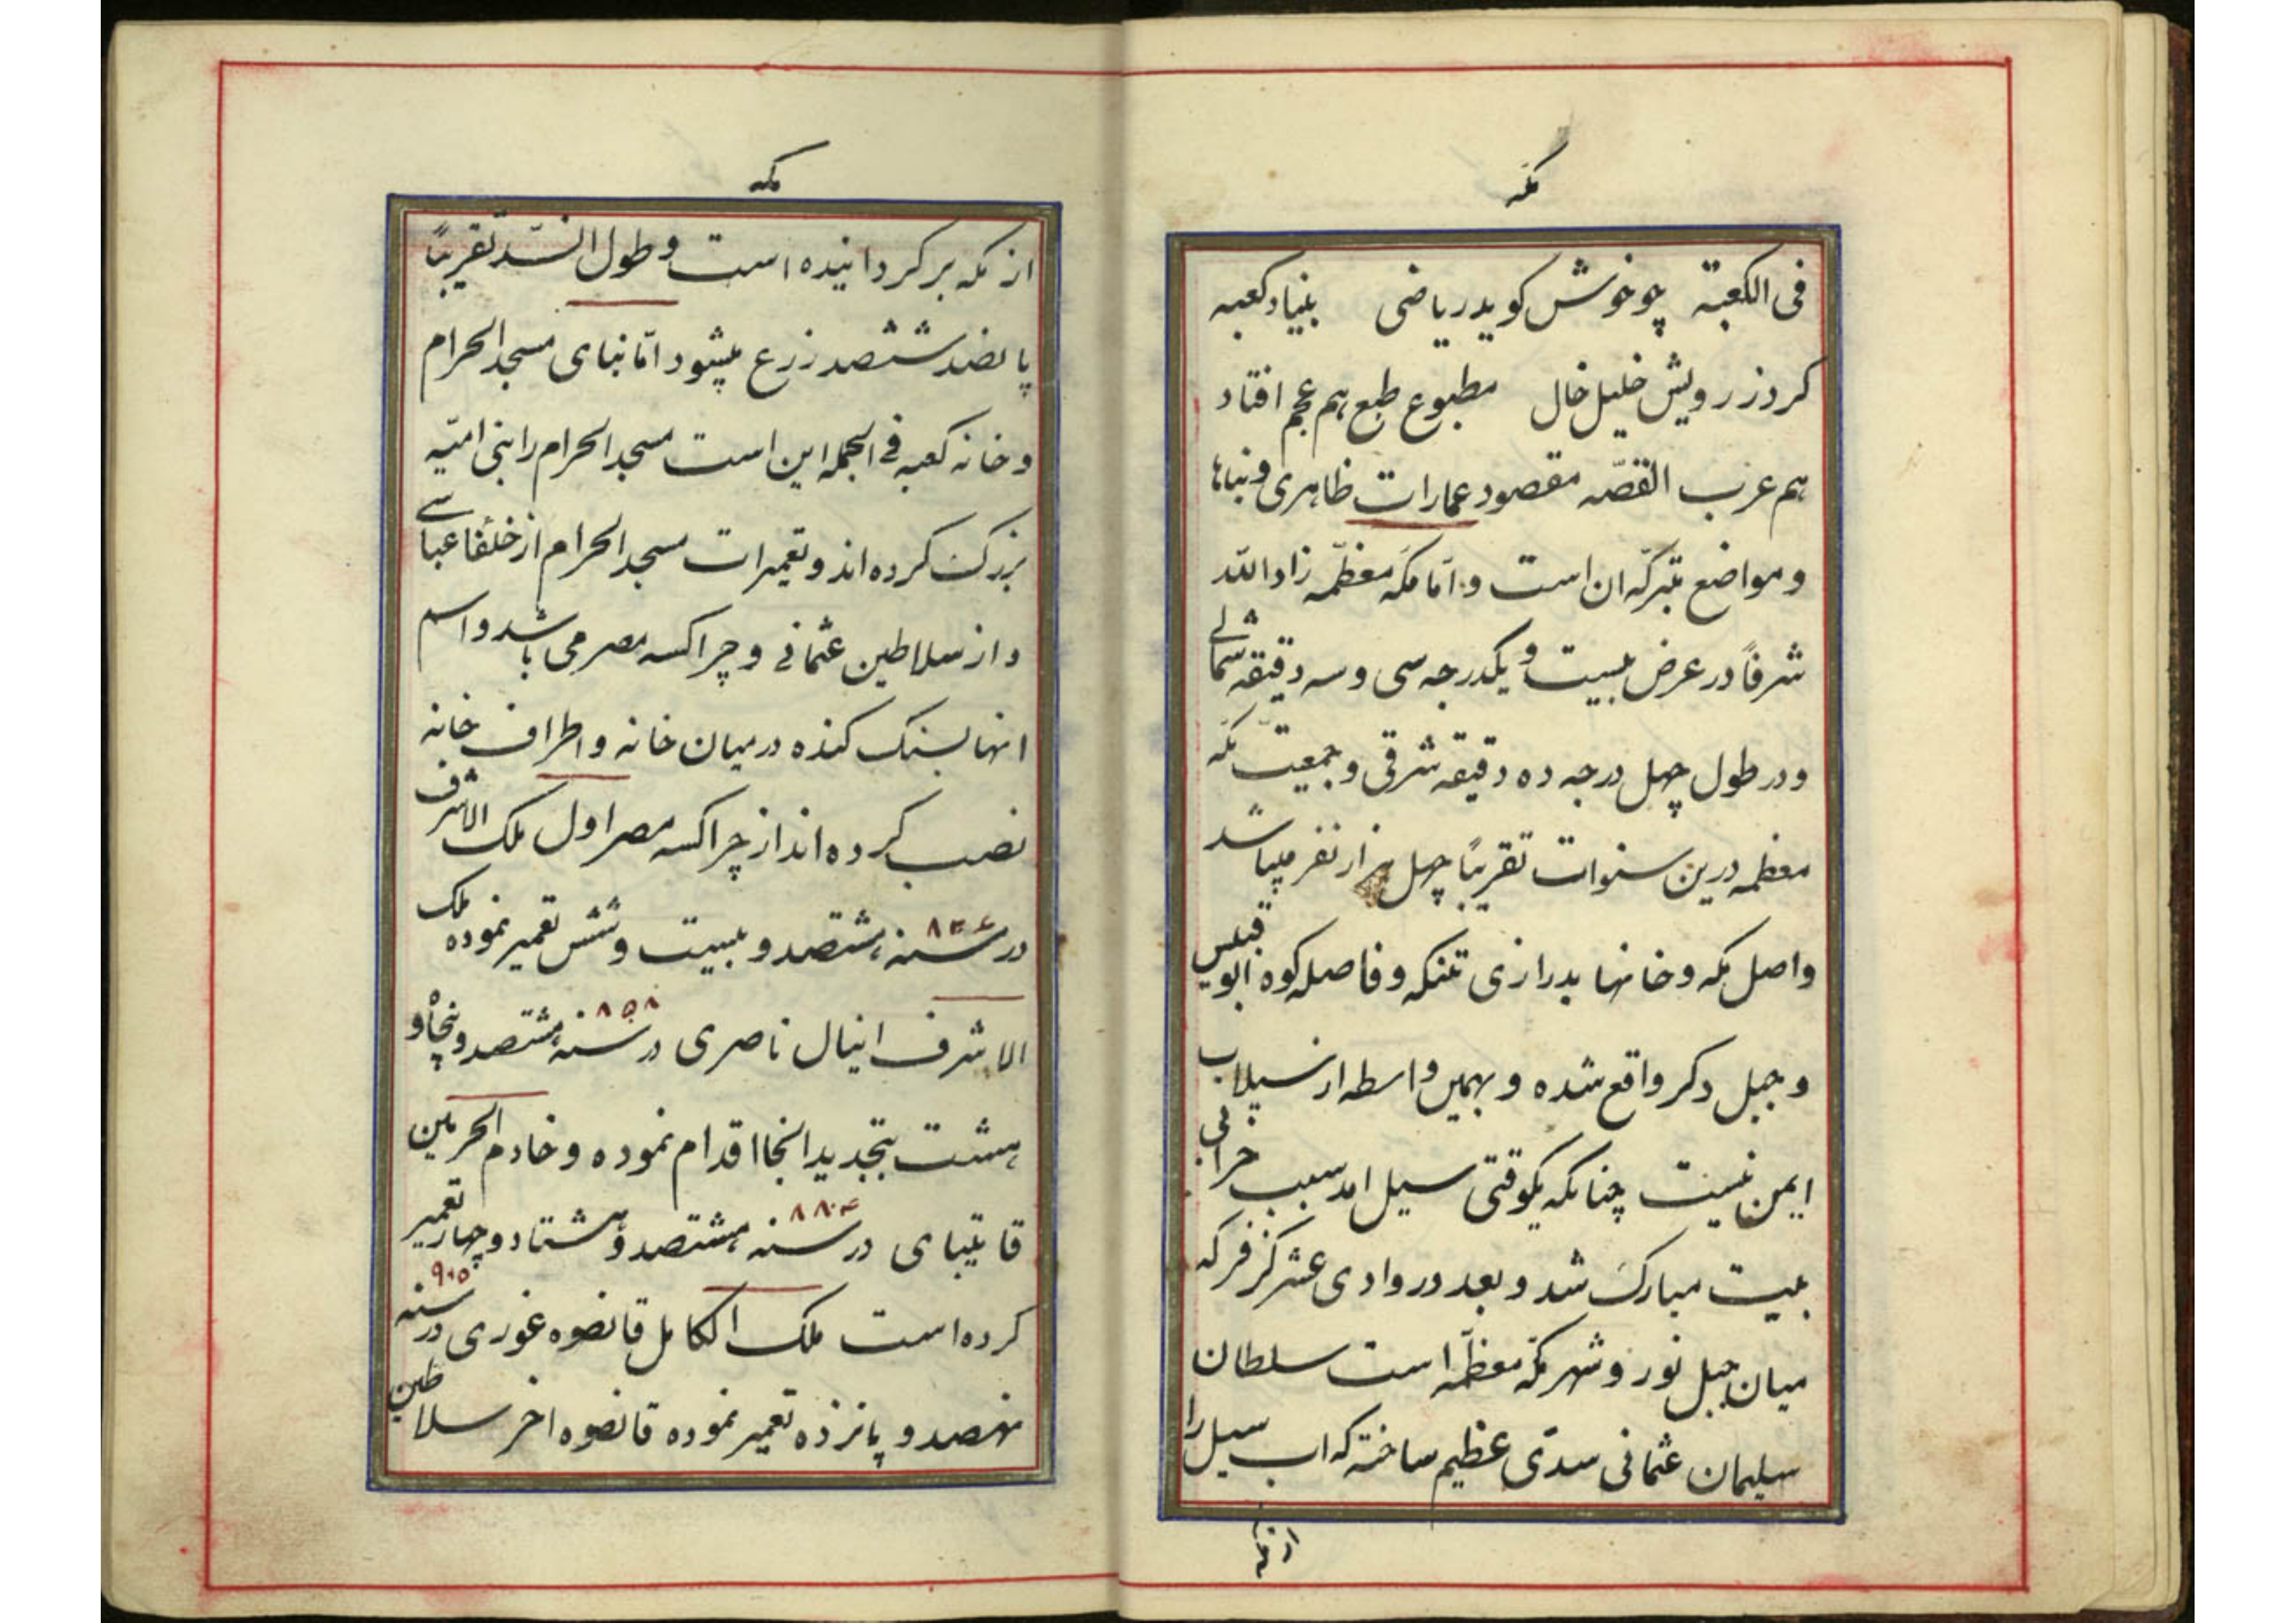 مکّه
فی الکعبة چو خوش کوید ریاضی بنیاد کعبه
کرد ز رویش خلیل خال مطبوع طبع هم عجم افتاد
هم عرب القصّه مقصود عمارات ظاهری و بناها
و مواضع متبرکّه ان است و امّا مکّه معظّمه زاد اللّه
شرفاً در عرض بیست و یکدرجه سی و سه دقیقه شمالے
و در طول چهل درجه ده دقیقه شرقی و جمعیّت مکّه
معظمه درین سنوات تقریباً چهل هزار نفر میباشد
واصل مکه و خانها بدرازی تنکه و فاصله کوه ابو قبیس
و جبل دکر واقع شده و بهمین واسطه از سیلاب
ایمن نیست چنانکه یکوقتی سیل امد سبب خرابی
بیت مبارک شد و بعد در وادی عشر کز فر که
میان جبل نور و شهر مکّه معظّمه است سلطان
سلیمان عثمانی سدّی عظیم ساخته که اب سیل را
از مکه
مکه
از مکه بر کردانیده است و طول ان سدّ تقریباً
پانصد ششصد زرع میشود امّا بنای مسجد الحرام
و خانه کعبه فے الجمله این است مسجد الحرام را بنی امیّه
بزرک کرده اند و تعمیرات مسجد الحرام از خلفا عباسے
و از سلاطین عثمانے و چراکسه مصر می باشد و اسم
انها بسنک کنده در میان خانه و اطراف خانه
نصب کرده اند از چراکسه مصر اول ملک الاشرف
در سنه ۸۲۶ هشتصد و بیست و شش تعمیر نموده ملک
الاشرف اینال ناصری در سنه ۸۵۸ هشتصد و پنجاه و
هشت بتجدید انجا اقدام نموده و خادم الحرمین
قایتبای در سنه ۸۸۴ هشتصد و هشتاد و چهار تعمیر
کرده است ملک الکامل قانصوه غوری در سنه ۹۰۵
نهصد و پانزده تعمیر نموده قانصوه اخر سلاطین